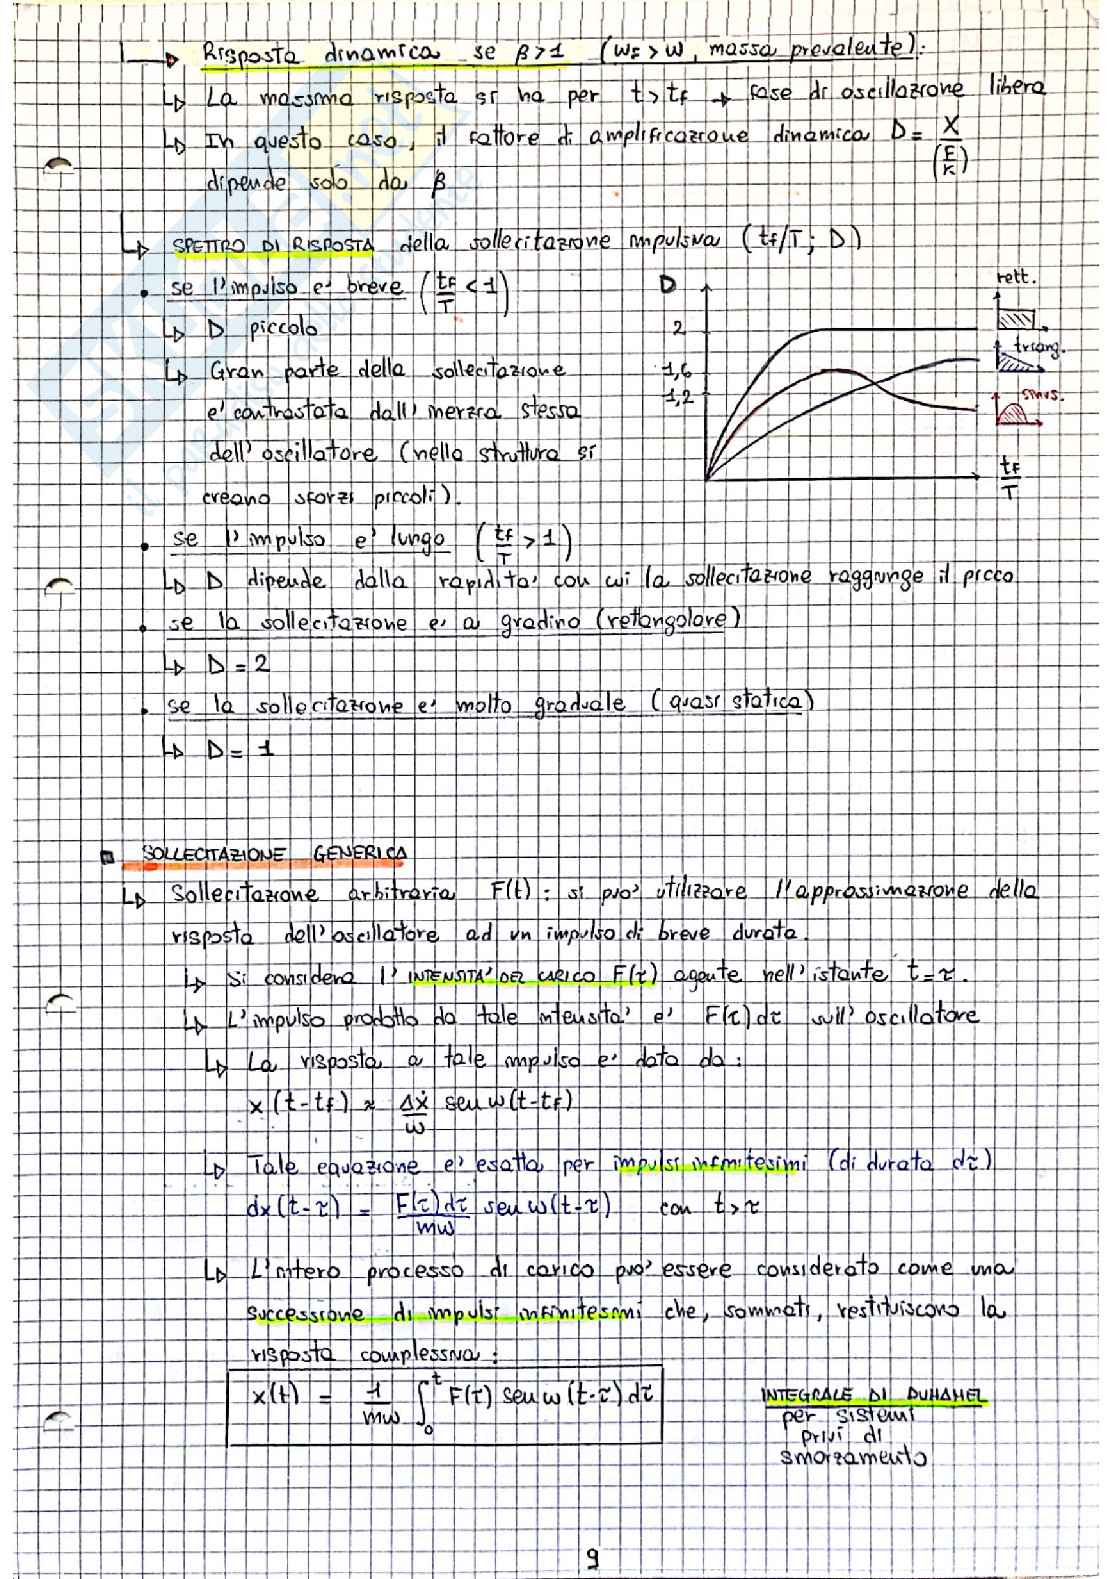 Risposta dinamica se β>1 (ωF>ω, massa prevalente):
La massima risposta si ha per t>tf → fase di oscillazione libera
In questo caso, il fattore di amplificazione dinamica D= X/(F/K)
dipende solo da β
SPETTRO DI RISPOSTA della sollecitazione impulsiva (tf/T; D)
• se l'impulso e' breve (tf/T < 1)
D piccolo
Gran parte della sollecitazione
e' contrastata dall'inerzia stessa
dell'oscillatore (nella struttura si
creano sforzi piccoli).
D
2
1,6
1,2
rett.
triang.
sinus.
tf/T
• se l'impulso e' lungo (tf/T > 1)
D dipende dalla rapidita' con cui la sollecitazione raggiunge il picco
• se la sollecitazione e' a gradino (rettangolare)
D = 2
• se la sollecitazione e' molto graduale (quasi statica)
D = 1
SOLLECITAZIONE GENERICA
Sollecitazione arbitraria F(t): si puo' utilizzare l'approssimazione della
risposta dell'oscillatore ad un impulso di breve durata.
Si considera l'INTENSITA' DEL CARICO F(τ) agente nell'istante t=τ.
L'impulso prodotto da tale intensita' e' F(τ)dτ sull'oscillatore
La risposta a tale impulso e' data da:
x(t-tf) ≈ Δẋ/ω sen ω(t-tf)
Tale equazione e' esatta per impulsi infinitesimi (di durata dτ)
dx(t-τ) = F(τ)dτ/mω sen ω(t-τ) con t>τ
L'intero processo di carico puo' essere considerato come una
successione di impulsi infinitesimi che, sommati, restituiscono la
risposta complessiva:
x(t) = 1/mω ∫₀ᵗ F(τ) sen ω(t-τ)dτ
INTEGRALE DI DUHAMEL
per sistemi
privi di
smorzamento
9